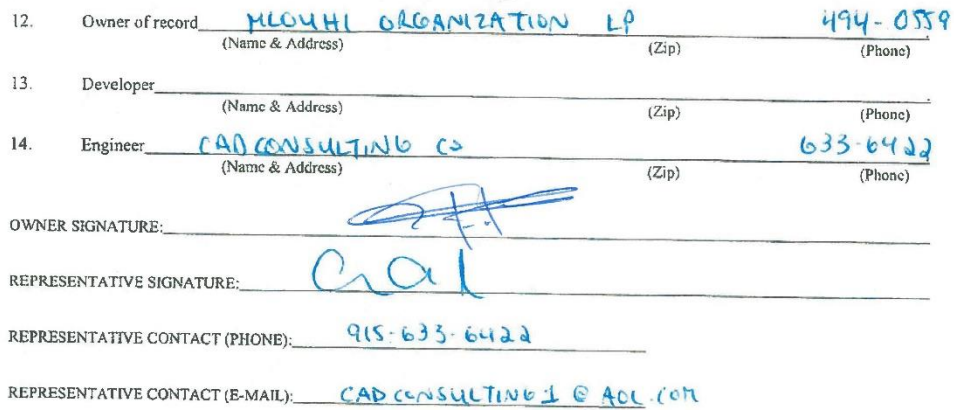 12. Owner of record MLOUHI ORGANIZATION LP 494-0559
(Name & Address) (Zip) (Phone)
13. Developer
(Name & Address) (Zip) (Phone)
14. Engineer CAD CONSULTING CO 633-6422
(Name & Address) (Zip) (Phone)
OWNER SIGNATURE:
REPRESENTATIVE SIGNATURE:
REPRESENTATIVE CONTACT (PHONE): 915-633-6422
REPRESENTATIVE CONTACT (E-MAIL): CADCONSULTING1@AOL.COM